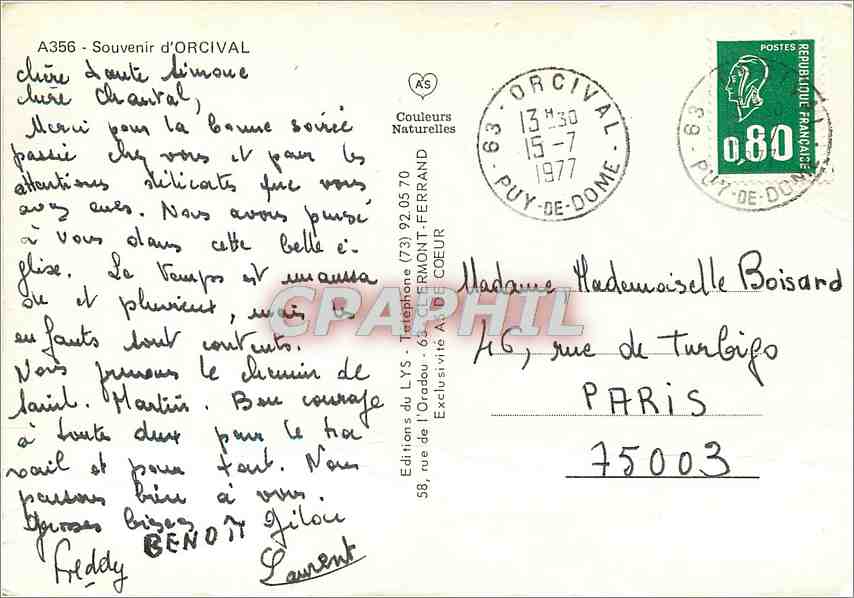 A356 - Souvenir d'ORCIVAL
chère tante Simone
chère Chantal,
Merci pour la bonne soirée
passée chez vous et pour les
attentions délicates que vous
avez eues. Nous avons pensé
à vous dans cette belle é-
glise. Le temps est
et pluvieux, mais les
enfants sont contents.
Nous prenons le chemin de
Saint. Martin. Bon courage
à toute deux pour le tra
vail et pour tout. Nous
pensons bien à vous.
Grosses bises Gilou
BENOÎT
Freddy
Laurent
AS
Couleurs
Naturelles
Editions du LYS - Téléphone (73) 92.05 70
58, rue de l'Oradou - 63 CLERMONT-FERRAND
Exclusivité AS DE COEUR
63 - ORCIVAL
13H30
15-7
1977
PUY-DE-DOME
POSTES
REPUBLIQUE FRANÇAISE
0,80
63
PUY-DE-DOME
CPAPHIL
Madame Mademoiselle Boisard
46, rue de Turbigo
PARIS
75003